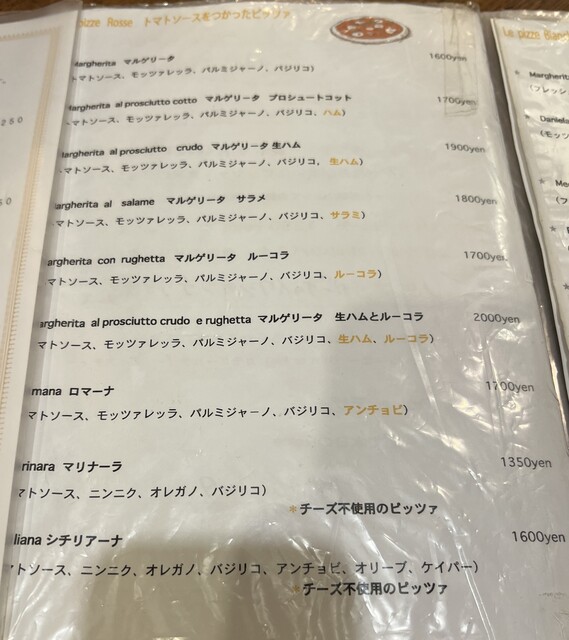 pizze Rosse トマトソースをつかったピッツァ
argherita マルゲリータ 1600yen
トマトソース、モッツァレッラ、パルミジャーノ、バジリコ）
argherita al prosciutto cotto マルゲリータ プロシュートコット 1700yen
トマトソース、モッツァレッラ、パルミジャーノ、バジリコ、ハム）
argherita al prosciutto crudo マルゲリータ 生ハム 1900yen
トマトソース、モッツァレッラ、パルミジャーノ、バジリコ、生ハム）
argherita al salame マルゲリータ サラメ 1800yen
マトソース、モッツァレッラ、パルミジャーノ、バジリコ、サラミ）
argherita con rughetta マルゲリータ ルーコラ 1700yen
マトソース、モッツァレッラ、パルミジャーノ、バジリコ、ルーコラ）
argherita al prosciutto crudo e rughetta マルゲリータ 生ハムとルーコラ 2000yen
マトソース、モッツァレッラ、パルミジャーノ、バジリコ、生ハム、ルーコラ）
mana ロマーナ 1700yen
マトソース、モッツァレッラ、パルミジャーノ、バジリコ、アンチョビ）
rinara マリナーラ 1350yen
マトソース、ニンニク、オレガノ、バジリコ）
*チーズ不使用のピッツァ
liana シチリアーナ 1600yen
トソース、ニンニク、オレガノ、バジリコ、アンチョビ、オリーブ、ケイパー）
*チーズ不使用のピッツァ
Le pizze Bianch
* Margherit
（フレッシ
* Daniela
（モッツ